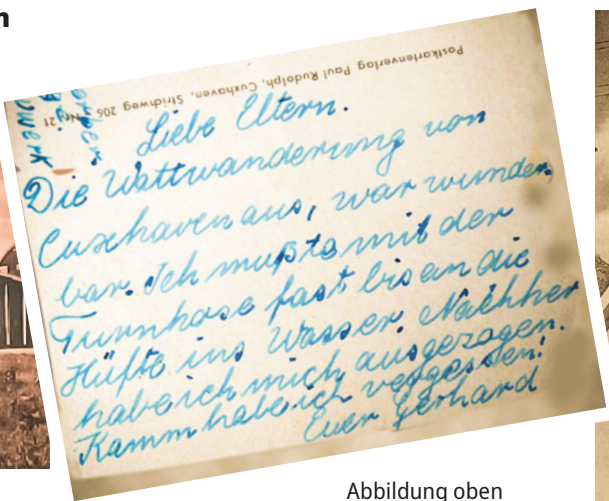 n
Postkartenverlag Paul Rudolph, Cuxhaven, Strichweg 206 Nr. 21
Liebe Eltern.
Die Wattwanderung von
Cuxhaven aus, war wunder
bar. Ich mußte mit der
Turnhose fast bis an die
Hüfte ins Wasser. Nachher
habe ich mich ausgezogen.
Kamm habe ich vergessen!
Euer Gerhard
Abbildung oben